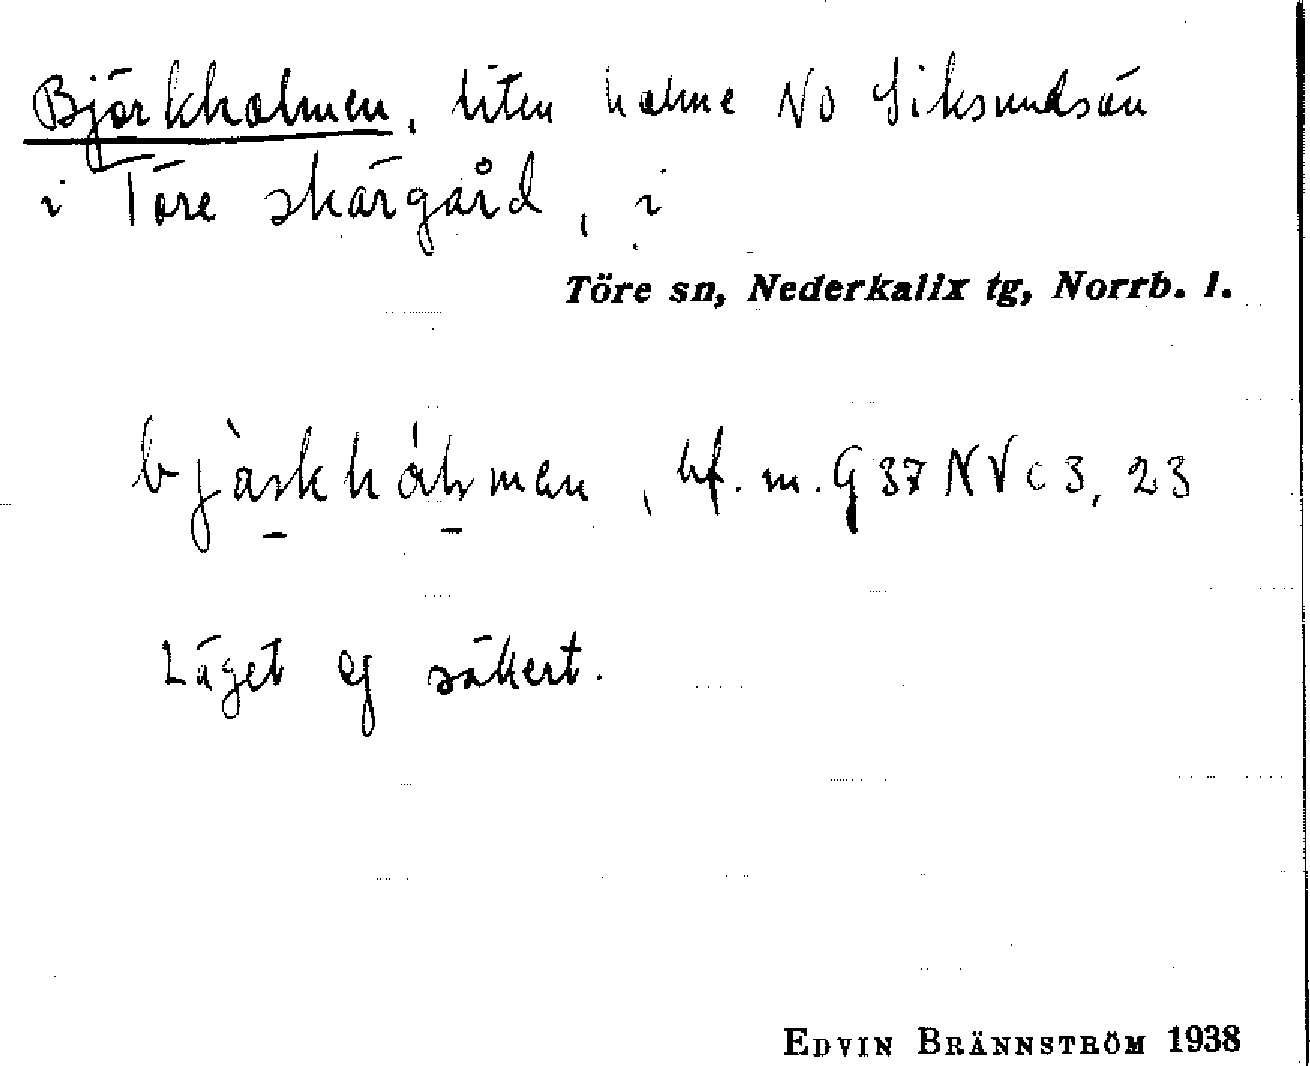 Björkholmen, liten holme NO Siksundsön
i Töre skärgård, i
Töre sn, Nederkalix tg, Norrb. l.
bjàrkhålmen, bf. m. G 37 NV c 3, 23
Läget ej säkert.
EDVIN BRÄNNSTRÖM 1938